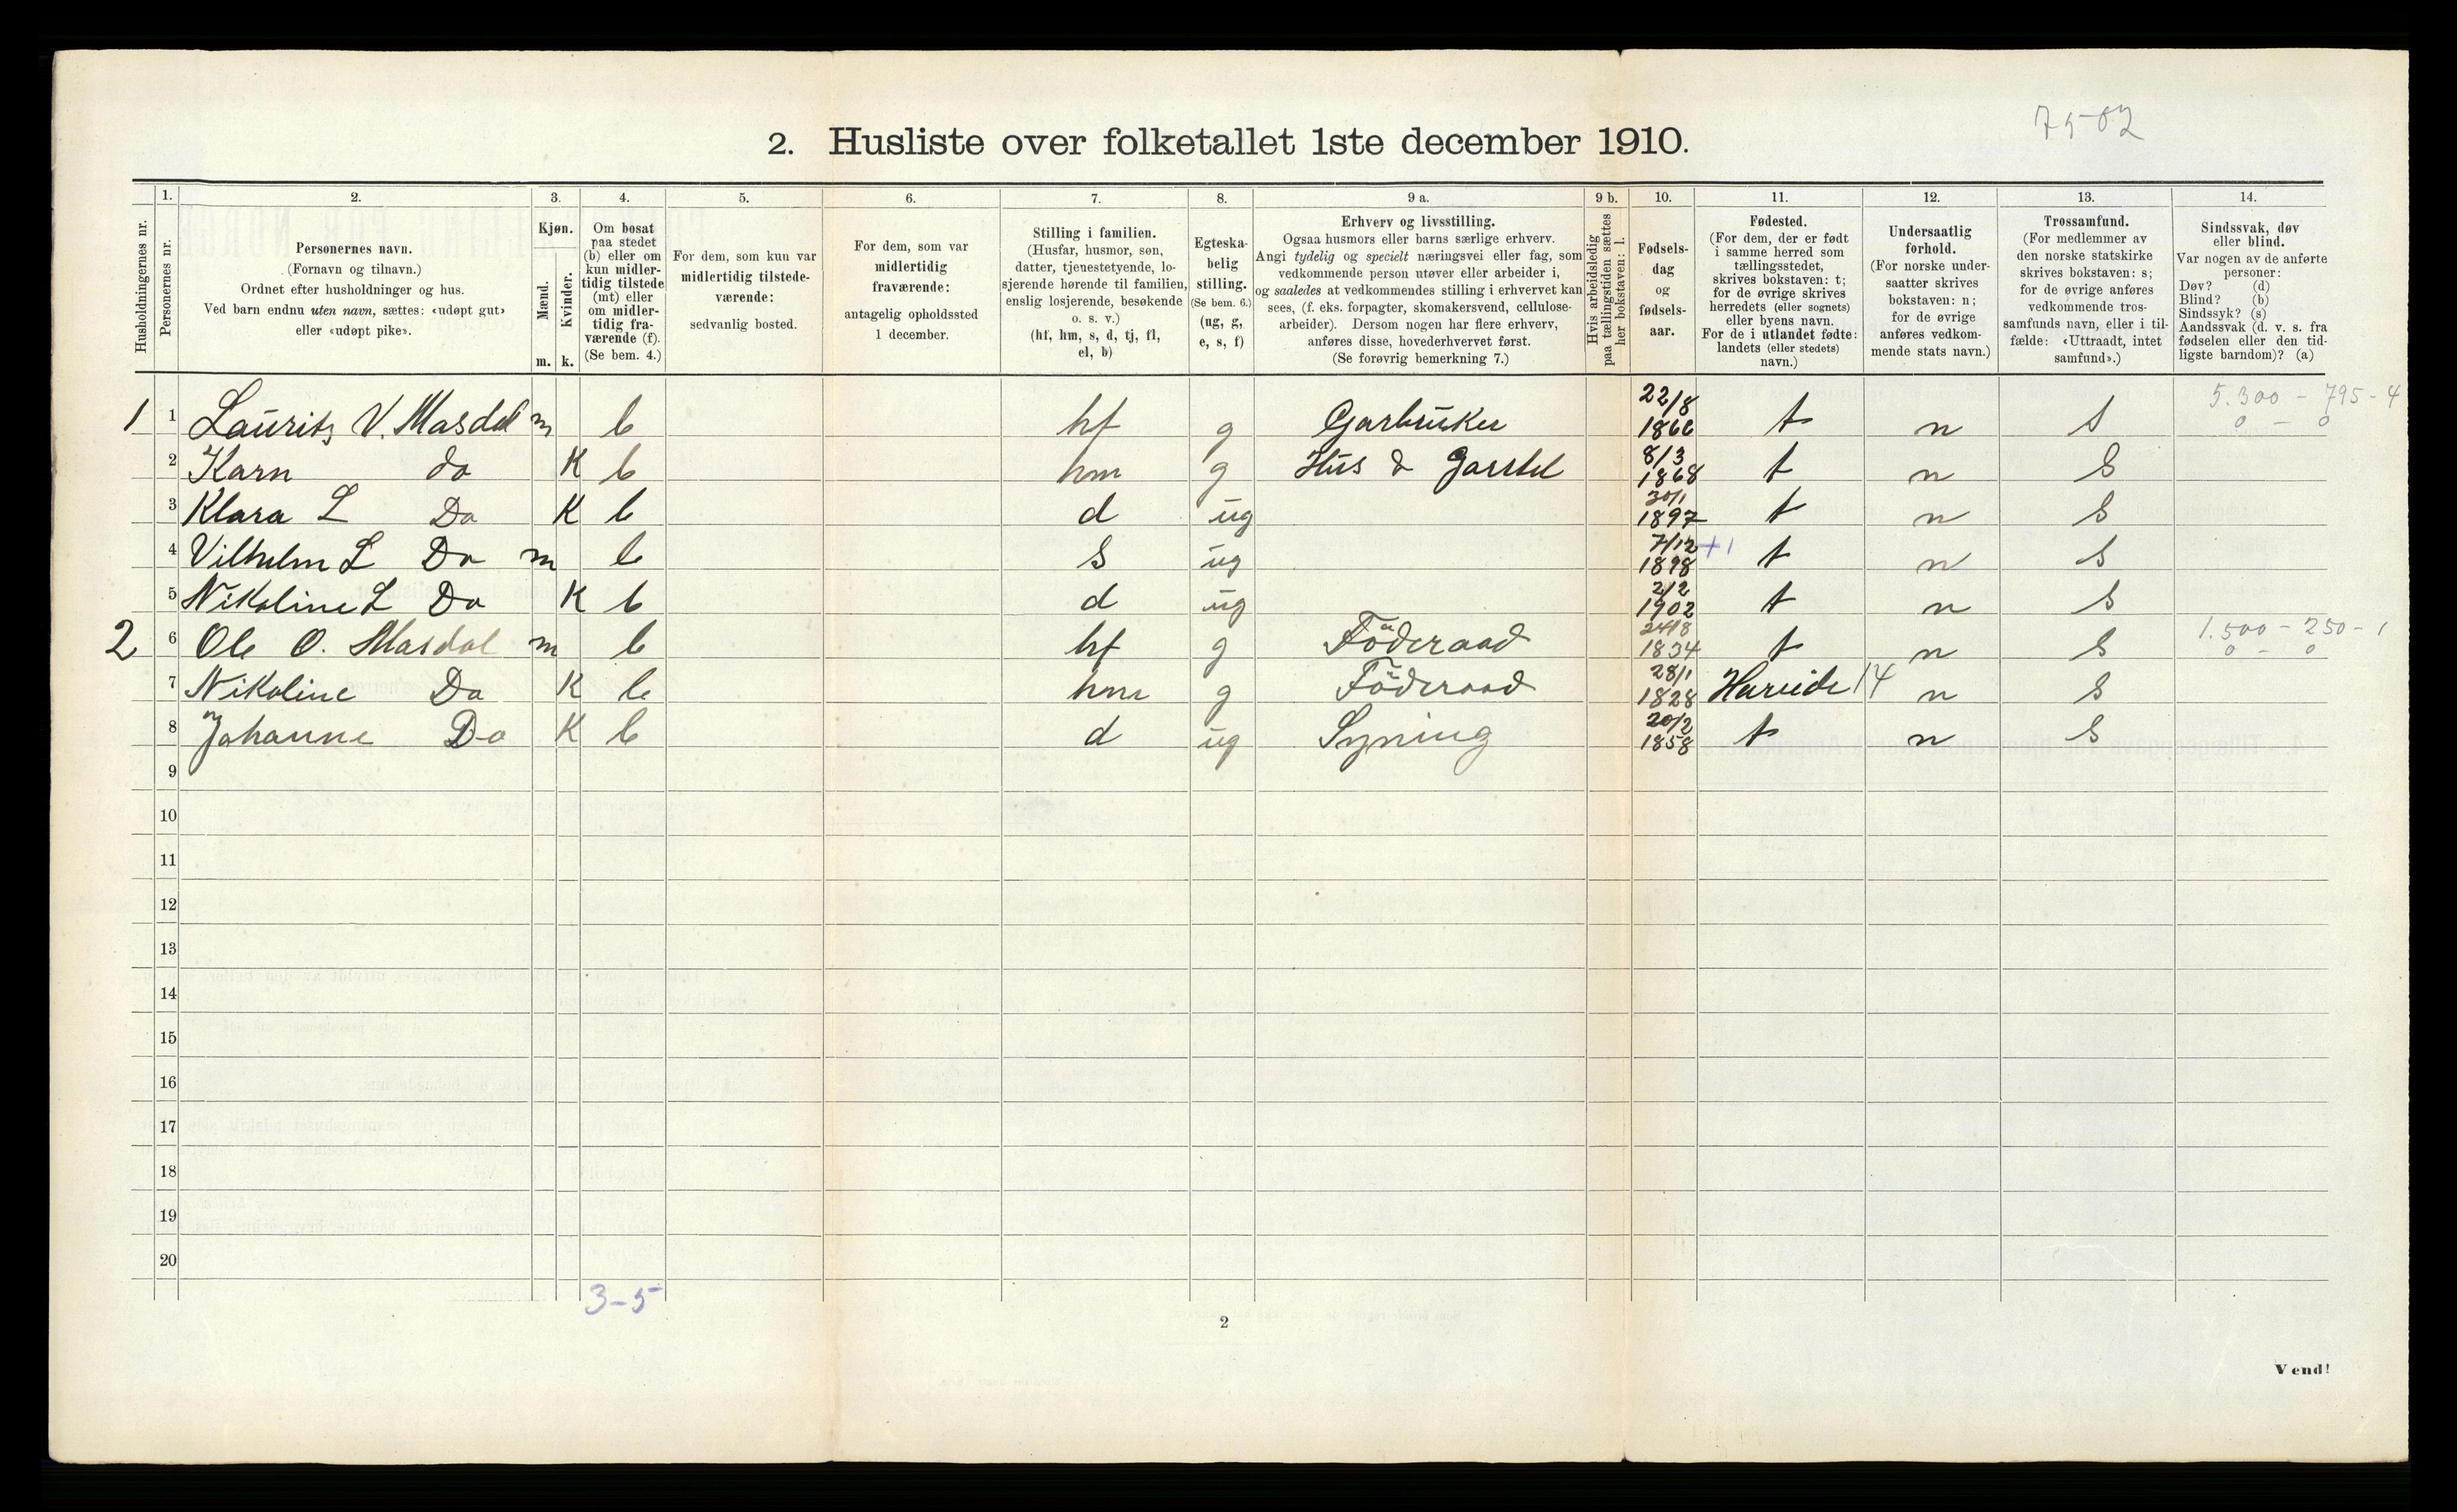 75-02
2. Husliste over folketallet 1ste december 1910.
Husholdningernes nr.
1.
Personernes nr.
2.
Personernes navn.
(Fornavn og tilnavn.)
Ordnet efter husholdninger og hus.
Ved barn endnu uten navn, sættes: «udøpt gut»
eller «udøpt pike».
3.
Kjøn.
Mænd.
Kvinder.
m. k.
4.
Om bosat
paa stedet
(b) eller om
kun midler-
tidig tilstede
(mt) eller
om midler-
tidig fra-
værende (f).
(Se bem. 4.)
5.
For dem, som kun var
midlertidig tilstede-
værende:
sedvanlig bosted.
6.
For dem, som var
midlertidig
fraværende:
antagelig opholdssted
1 december.
7.
Stilling i familien.
(Husfar, husmor, søn,
datter, tjenestetyende, lo-
sjerende hørende til familien,
enslig losjerende, besøkende
o. s. v.)
(hf, hm, s, d, tj, fl,
el, b)
8.
Egteska-
belig
stilling.
(Se bem. 6.)
(ug, g,
e, s, f)
9 a.
Erhverv og livsstilling.
Ogsaa husmors eller barns særlige erhverv.
Angi tydelig og specielt næringsvei eller fag, som
vedkommende person utøver eller arbeider i,
og saaledes at vedkommendes stilling i erhvervet kan
sees, (f. eks. forpagter, skomakersvend, cellulose-
arbeider). Dersom nogen har flere erhverv,
anføres disse, hovederhvervet først.
(Se forøvrig bemerkning 7.)
9 b.
Hvis arbeidsledig
paa tællingstiden sættes
her bokstaven: l.
10.
Fødsels-
dag
og
fødsels-
aar.
11.
Fødested.
(For dem, der er født
i samme herred som
tællingsstedet,
skrives bokstaven: t;
for de øvrige skrives
herredets (eller sognets)
eller byens navn.
For de i utlandet fødte:
landets (eller stedets)
navn.)
12.
Undersaatlig
forhold.
(For norske under-
saatter skrives
bokstaven: n;
for de øvrige
anføres vedkom-
mende stats navn.)
13.
Trossamfund.
(For medlemmer av
den norske statskirke
skrives bokstaven: s;
for de øvrige anføres
vedkommende tros-
samfunds navn, eller i til-
fælde: «Uttraadt, intet
samfund».)
14.
Sindssvak, døv
eller blind.
Var nogen av de anførte
personer:
Døv? (d)
Blind? (b)
Sindssyk? (s)
Aandssvak (d. v. s. fra
fødselen eller den tid-
ligste barndom)? (a)
1 1 Lauritz V. Masdal m b hf g Garbruker 22/8 1866 t n s 5.300 - 795 - 4 0 - 0
2 Karn do K b hm g Hus & Garstel 8/3 1868 t n s
3 Klara L Do K b d ug 30/1 1897 t n s
4 Vilhelm L Do m b s ug 7/12 1898 +1 t n s
5 Nikoline L Do K b d ug 2/2 1902 t n s
2 6 Ole O. Masdal m b hf g Föderaad 24/8 1834 t n s 1.500 - 250 - 1 0 - 0
7 Nikoline Do K b hm g Föderaad 28/1 1828 Hareide 14 n s
8 Johanne Do K b d ug Syning 20/2 1858 t n s
9
10
11
12
13
14
15
16
17
18
19
20
3-5
2
Vend!